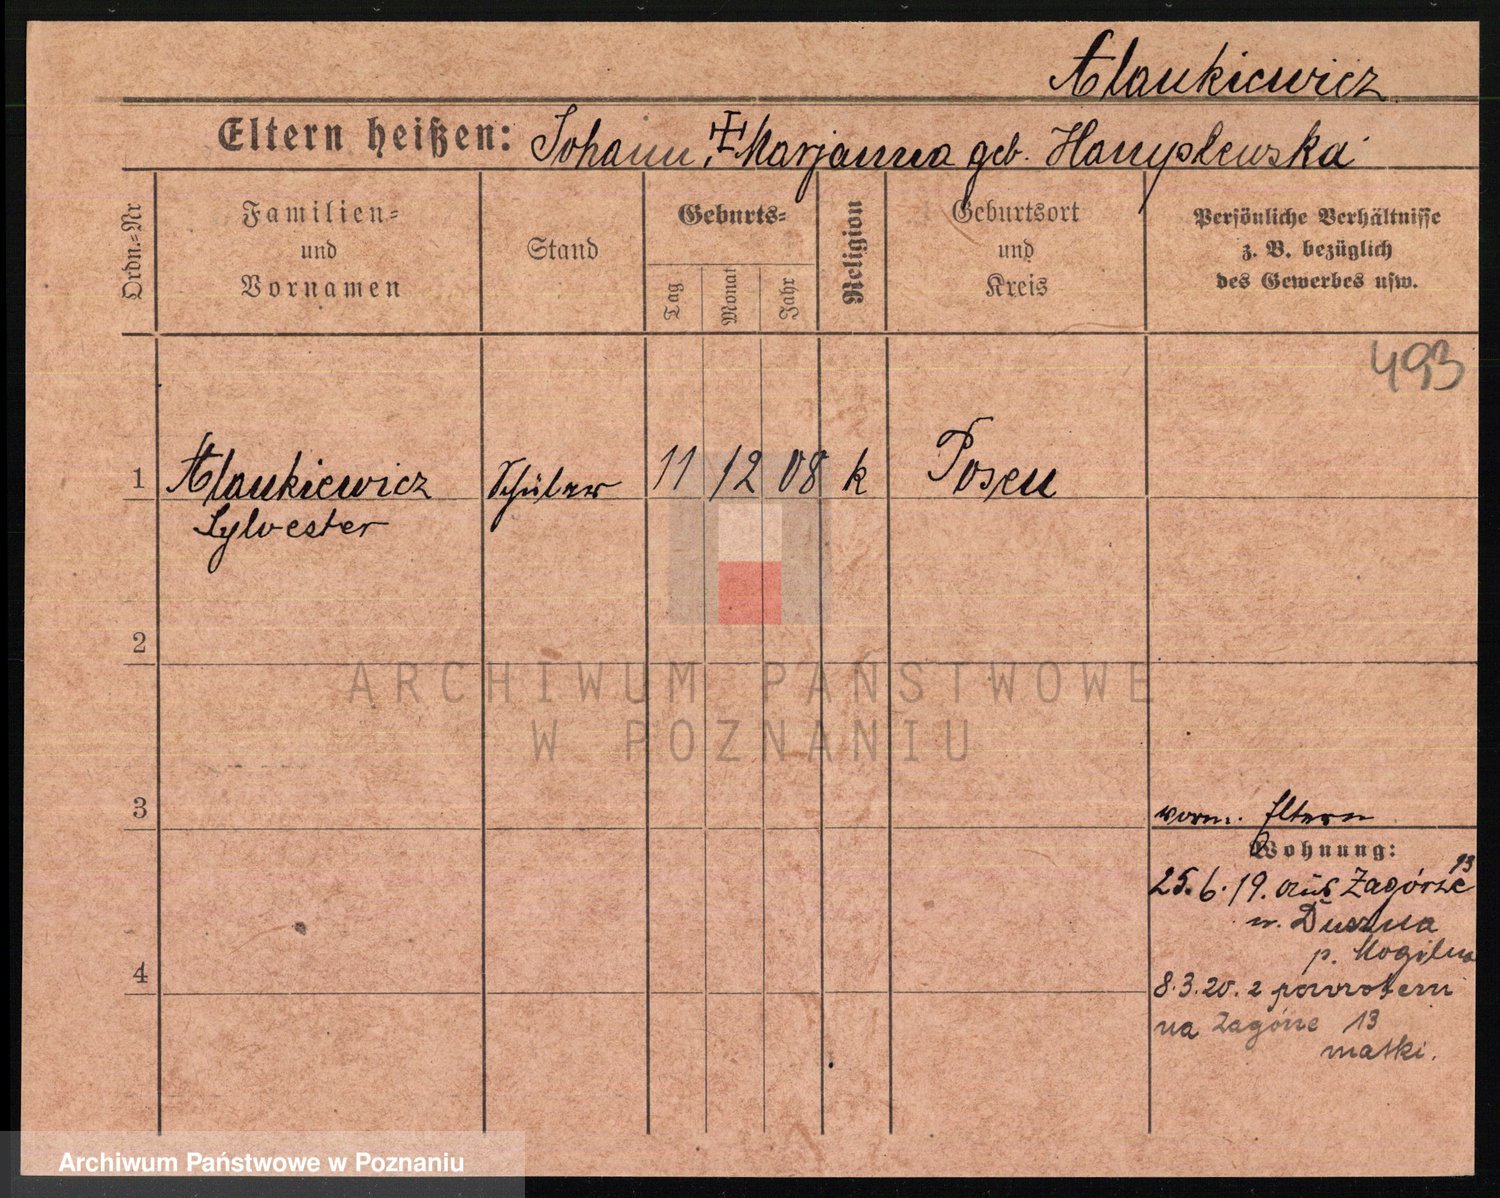 Alankiewicz
Eltern heißen: Johann, Marjanna geb. Hamplewska
Ordn.=Nr
Familien=
und
Vornamen
Stand
Geburts=
Tag
Monat
Jahr
Religion
Geburtsort
und
Kreis
Persönliche Verhältnisse
z. B. bezüglich
des Gewerbes usw.
493
1 Alankiewicz Schüler 11 12 08 k Posen
Sylvester
2
3
4
Eltern
Wohnung:
25.6.19. aus Zagórze 13
n. Duszna
p. Mogilna
8.3.20. z powrotem
na Zagórze 13
matki.
ARCHIWUM PAŃSTWOWE
W POZNANIU
Archiwum Państwowe w Poznaniu